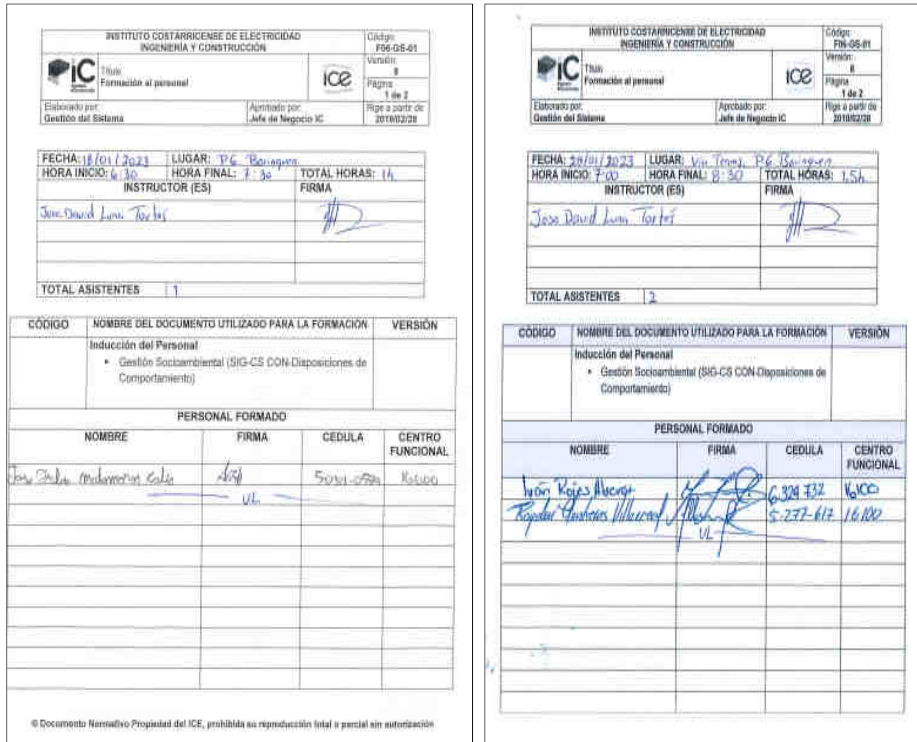 INSTITUTO COSTARRICENSE DE ELECTRICIDAD
INGENIERÍA Y CONSTRUCCIÓN
Código:
F06-GS-01
Versión:
8
iC
Título:
Formación al personal
ice
Página
1 de 2
Elaborado por:
Gestión del Sistema
Aprobado por:
Jefe de Negocio IC
Rige a partir de
2018/02/28
FECHA: 18/01/2023 LUGAR: P.G. Borinquen
HORA INICIO: 6:30 HORA FINAL: 7:30 TOTAL HORAS: 1h
INSTRUCTOR (ES) FIRMA
Jose David Luna
TOTAL ASISTENTES 1
CÓDIGO NOMBRE DEL DOCUMENTO UTILIZADO PARA LA FORMACIÓN VERSIÓN
Inducción del Personal
• Gestión Socioambiental (SIG-CS CON-Disposiciones de
Comportamiento)
PERSONAL FORMADO
NOMBRE FIRMA CEDULA CENTRO
FUNCIONAL
Jose 16100
UL
© Documento Normativo Propiedad del ICE, prohibida su reproducción total o parcial sin autorización
INSTITUTO COSTARRICENSE DE ELECTRICIDAD
INGENIERÍA Y CONSTRUCCIÓN
Código:
F06-GS-01
Versión:
8
iC
Título:
Formación al personal
ice
Página
1 de 2
Elaborado por:
Gestión del Sistema
Aprobado por:
Jefe de Negocio IC
Rige a partir de
2018/02/28
FECHA: /01/2023 LUGAR: P.G. Borinquen
HORA INICIO: 7:00 HORA FINAL: 8:30 TOTAL HORAS: 1,5h
INSTRUCTOR (ES) FIRMA
Jose David Luna
TOTAL ASISTENTES 2
CÓDIGO NOMBRE DEL DOCUMENTO UTILIZADO PARA LA FORMACIÓN VERSIÓN
Inducción del Personal
• Gestión Socioambiental (SIG-CS CON-Disposiciones de
Comportamiento)
PERSONAL FORMADO
NOMBRE FIRMA CEDULA CENTRO
FUNCIONAL
Iván Rojas 6 329 732 16100
Villarreal 5-277-617 16100
UL